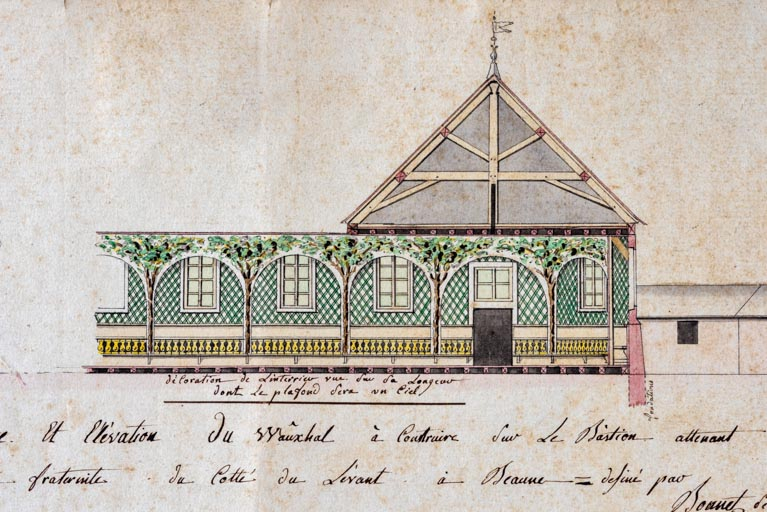 décoration de L'interrieu vue Sur Sa Longeur
dont Le plafond Sera un Ciel
fondations
e. Et Elévation Du Waûxhal à Contruire Sur Le Bâstion attenant
fraternite du Cotté du Lévant à Beaune = desiné par
Bonnet